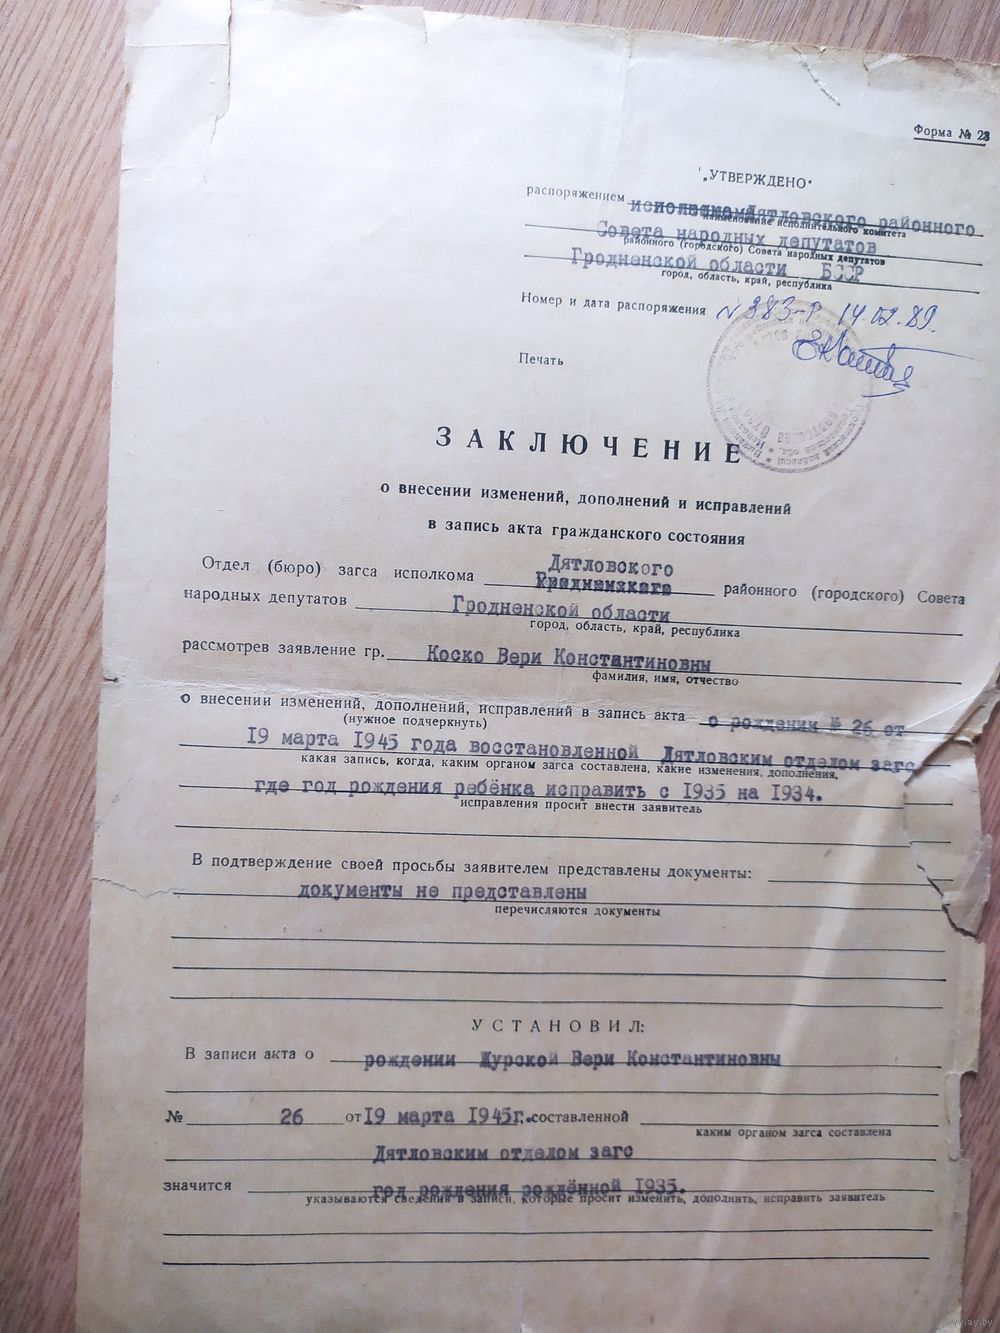 Форма № 23
„УТВЕРЖДЕНО"
распоряжением исполкома Дятловского районного
наименование исполнительного комитета
Совета народных депутатов
районного (городского) Совета народных депутатов
Гродненской области БССР
город, область, край, республика
Номер и дата распоряжения № 383-р 14.02.89.
Печать
ЗАКЛЮЧЕНИЕ
о внесении изменений, дополнений и исправлений
в запись акта гражданского состояния
Дятловского
Отдел (бюро) загса исполкома районного (городского) Совета
народных депутатов Гродненской области
город, область, край, республика
рассмотрев заявление гр. Коско Вери Константиновны
фамилия, имя, отчество
о внесении изменений, дополнений, исправлений в запись акта о рождении № 26 от
(нужное подчеркнуть)
19 марта 1945 года восстановленной Дятловским отделом загс
какая запись, когда, каким органом загса составлена, какие изменения, дополнения,
где год рождения ребёнка исправить с 1935 на 1934.
исправления просит внести заявитель
В подтверждение своей просьбы заявителем представлены документы:
документы не представлены
перечисляются документы
УСТАНОВИЛ:
В записи акта о рождении Журской Вери Константиновны
№ 26 от 19 марта 1945г. составленной
каким органом загса составлена
Дятловским отделом загс
значится год рождения рождённой 1935.
указываются сведения в записи, которые просит изменить, дополнить, исправить заявитель
www.ay.by